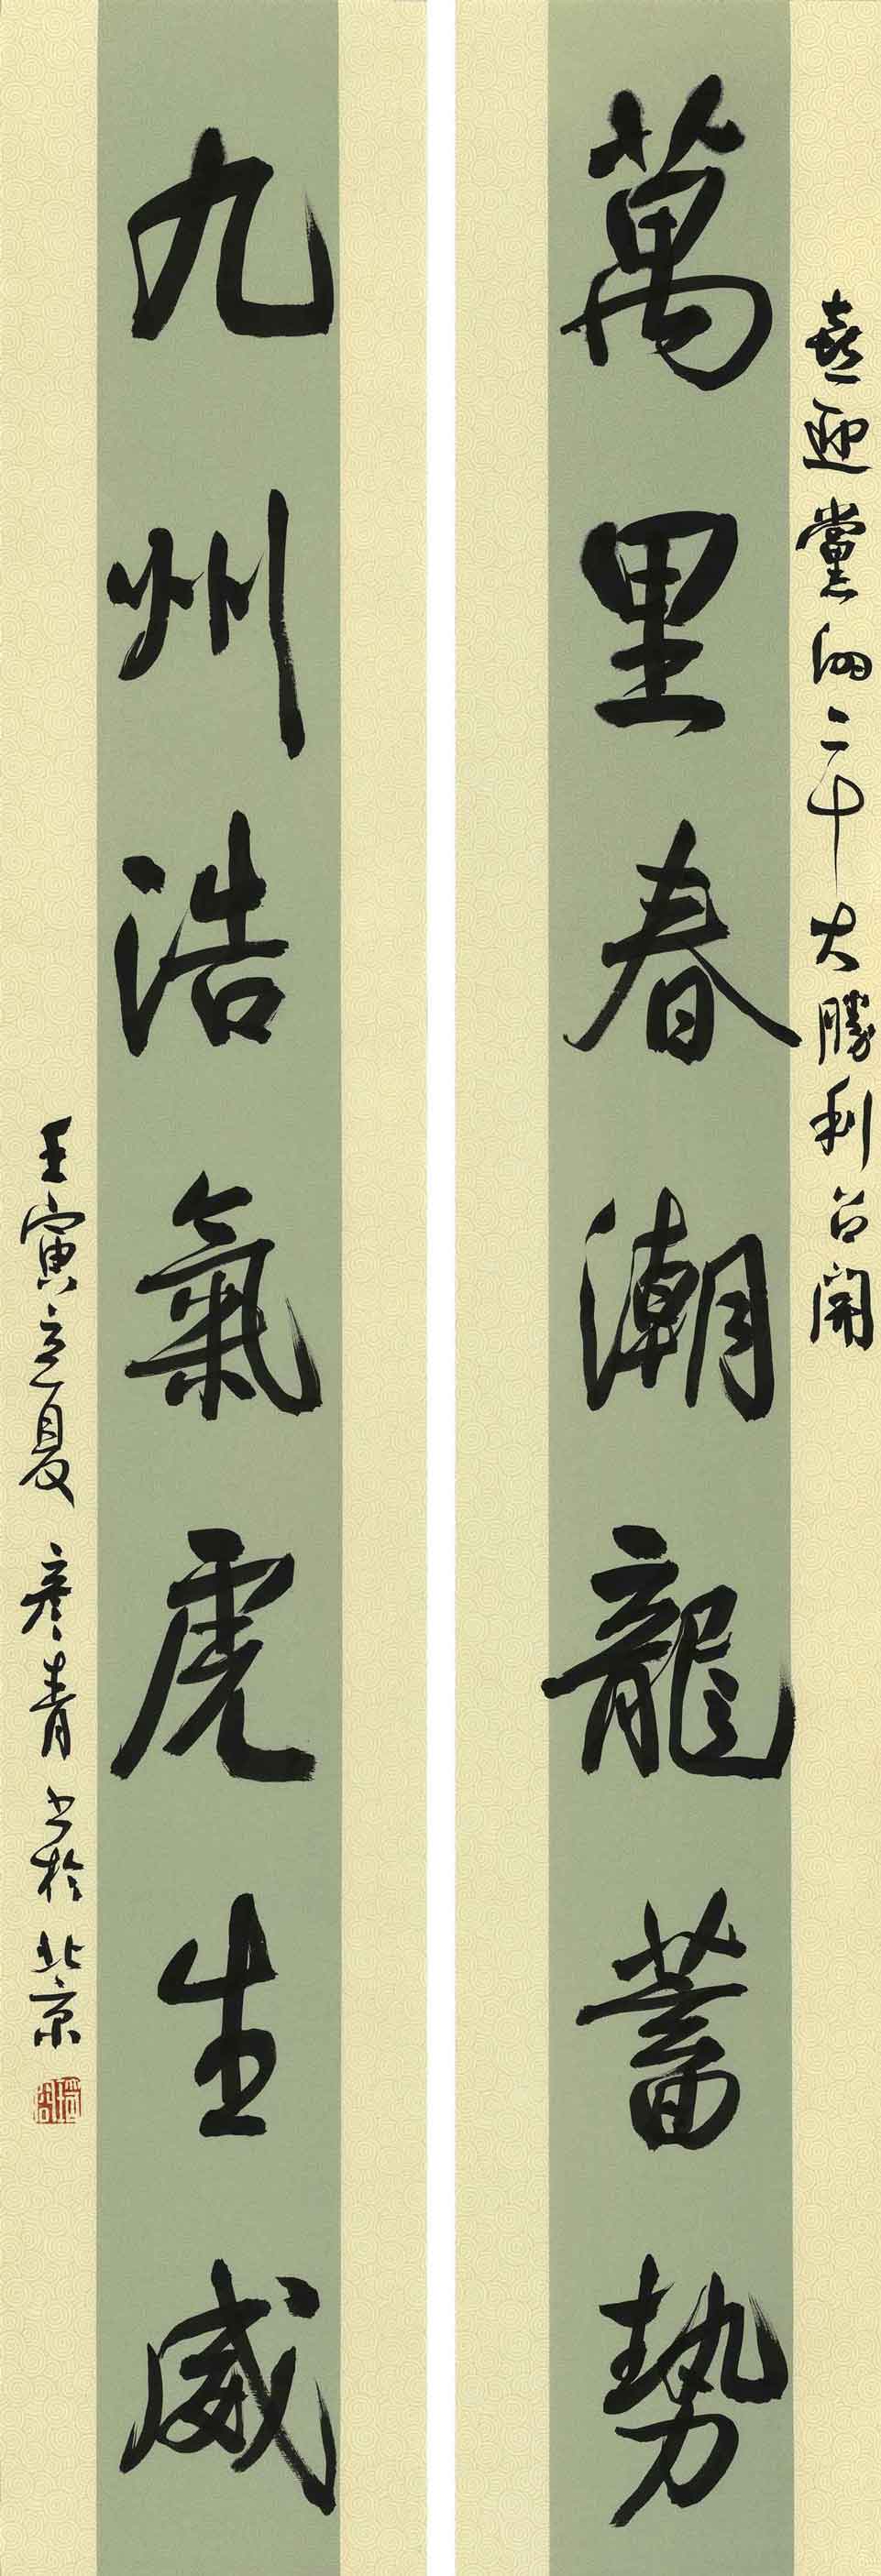 喜迎黨的二十大勝利召開
萬里春潮龍蓄勢
九州浩氣虎生威
壬寅立夏 彦青书於北京